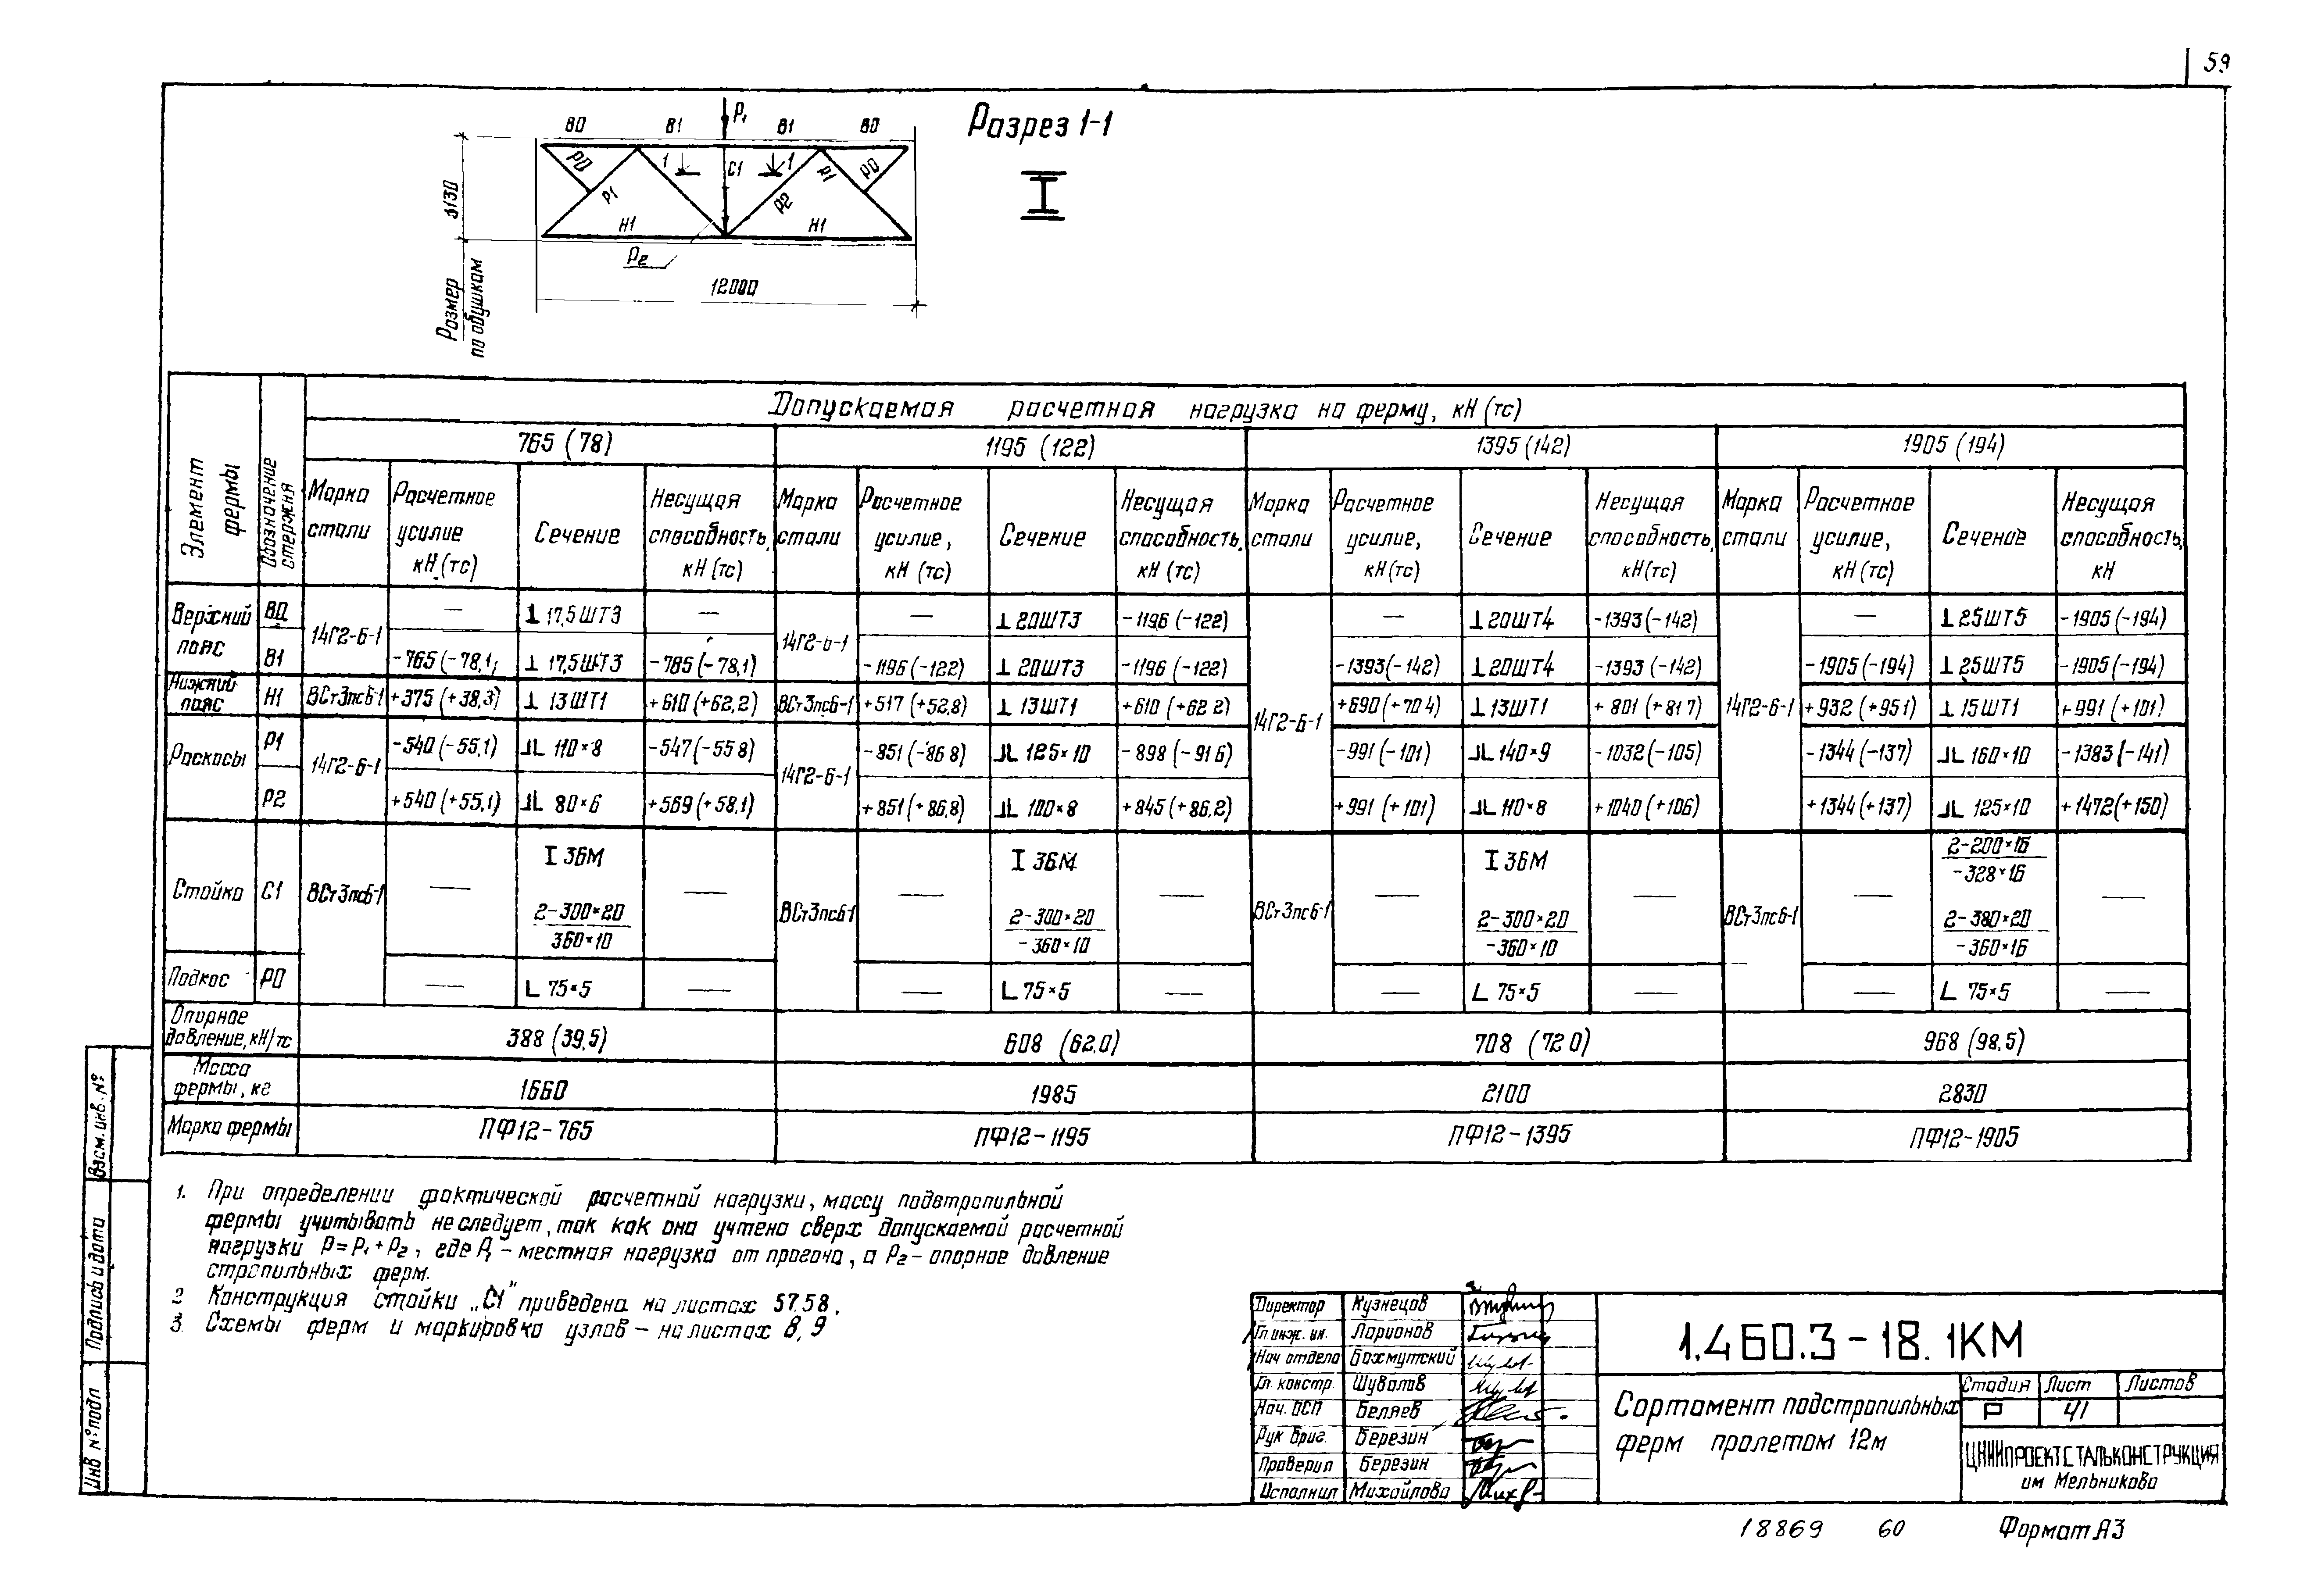 59
P₁
В0 В1 В1 В0
Разрез 1-1
Р0 Р1 1 С1 1 Р1 Р0
Р2
Н1 Н1
P₂
3130
12000
Размер
по обушкам
Элемент фермы
Обозначение стержня
Допускаемая расчетная нагрузка на ферму, кН (тс)
765 (78) 1195 (122) 1395 (142) 1905 (194)
Марка стали Расчетное усилие кН (тс) Сечение Несущая способность, кН (тс) Марка стали Расчетное усилие, кН (тс) Сечение Несущая способность, кН (тс) Марка стали Расчетное усилие, кН (тс) Сечение Несущая способность, кН (тс) Марка стали Расчетное усилие, кН (тс) Сечение Несущая способность, кН
Верхний пояс В0 14Г2-6-1 — ⊥ 17,5ШТ3 — 14Г2-6-1 — ⊥ 20ШТ3 -1196 (-122) 14Г2-6-1 — ⊥ 20ШТ4 -1393 (-142) 14Г2-6-1 — ⊥ 25ШТ5 -1905 (-194)
В1 -765 (-78,1) ⊥ 17,5ШТ3 -785 (-78,1) -1196 (-122) ⊥ 20ШТ3 -1196 (-122) -1393 (-142) ⊥ 20ШТ4 -1393 (-142) -1905 (-194) ⊥ 25ШТ5 -1905 (-194)
Нижний пояс Н1 ВСт3пс6-1 +375 (+38,3) ⊥ 13ШТ1 +610 (+62,2) ВСт3пс6-1 +517 (+52,8) ⊥ 13ШТ1 +610 (+62 2) +690 (+70 4) ⊥ 13ШТ1 +801 (+81 7) +932 (+95 1) ⊥ 15ШТ1 +991 (+101)
Раскосы Р1 14Г2-6-1 -540 (-55,1) ⅃L 110×8 -547 (-55 8) 14Г2-6-1 -851 (-86 8) ⅃L 125×10 -898 (-91 6) -991 (-101) ⅃L 140×9 -1032 (-105) -1344 (-137) ⅃L 160×10 -1383 (-141)
Р2 +540 (+55,1) ⅃L 80×6 +569 (+58,1) +851 (+86,8) ⅃L 100×8 +845 (+86,2) +991 (+101) ⅃L 110×8 +1040 (+106) +1344 (+137) ⅃L 125×10 +1472 (+150)
Стойка С1 ВСт3пс6-1 — I 36М — ВСт3пс6-1 — I 36М — ВСт3пс6-1 — I 36М — ВСт3пс6-1 — 2-200×16 —
-328×16
2-300×20 2-300×20 2-300×20 2-380×20
360×10 -360×10 -360×10 -360×16
Подкос Р0 — L 75×5 — — L 75×5 — — L 75×5 — — L 75×5 —
Опорное давление, кН/тс 388 (39,5) 608 (62,0) 708 (72 0) 968 (98,5)
Масса фермы, кг 1660 1985 2100 2830
Марка фермы ПФ12-765 ПФ12-1195 ПФ12-1395 ПФ12-1905
1. При определении фактической расчетной нагрузки, массу подстропильной
фермы учитывать не следует, так как она учтена сверх допускаемой расчетной
нагрузки P=P₁+P₂, где P₁ – местная нагрузка от прогона, а P₂ – опорное давление
стропильных ферм.
2 Конструкция стойки „С1" приведена на листах 57.58.
3. Схемы ферм и маркировка узлов – на листах 8, 9
Взам. инв. №
Подпись и дата
Инв № подл
Директор Кузнецов
Гл инж. ин. Ларионов
Нач отдела Бахмутский
Гл. констр. Шувалов
Нач. ОСП Беляев
Рук бриг. Березин
Проверил Березин
Исполнил Михайлова
1.460.3-18.1КМ
Сортамент подстропильных
ферм пролетом 12м
Стадия Лист Листов
Р 41
ЦНИИПРОЕКТСТАЛЬКОНСТРУКЦИЯ
им Мельникова
18869 60 Формат А3